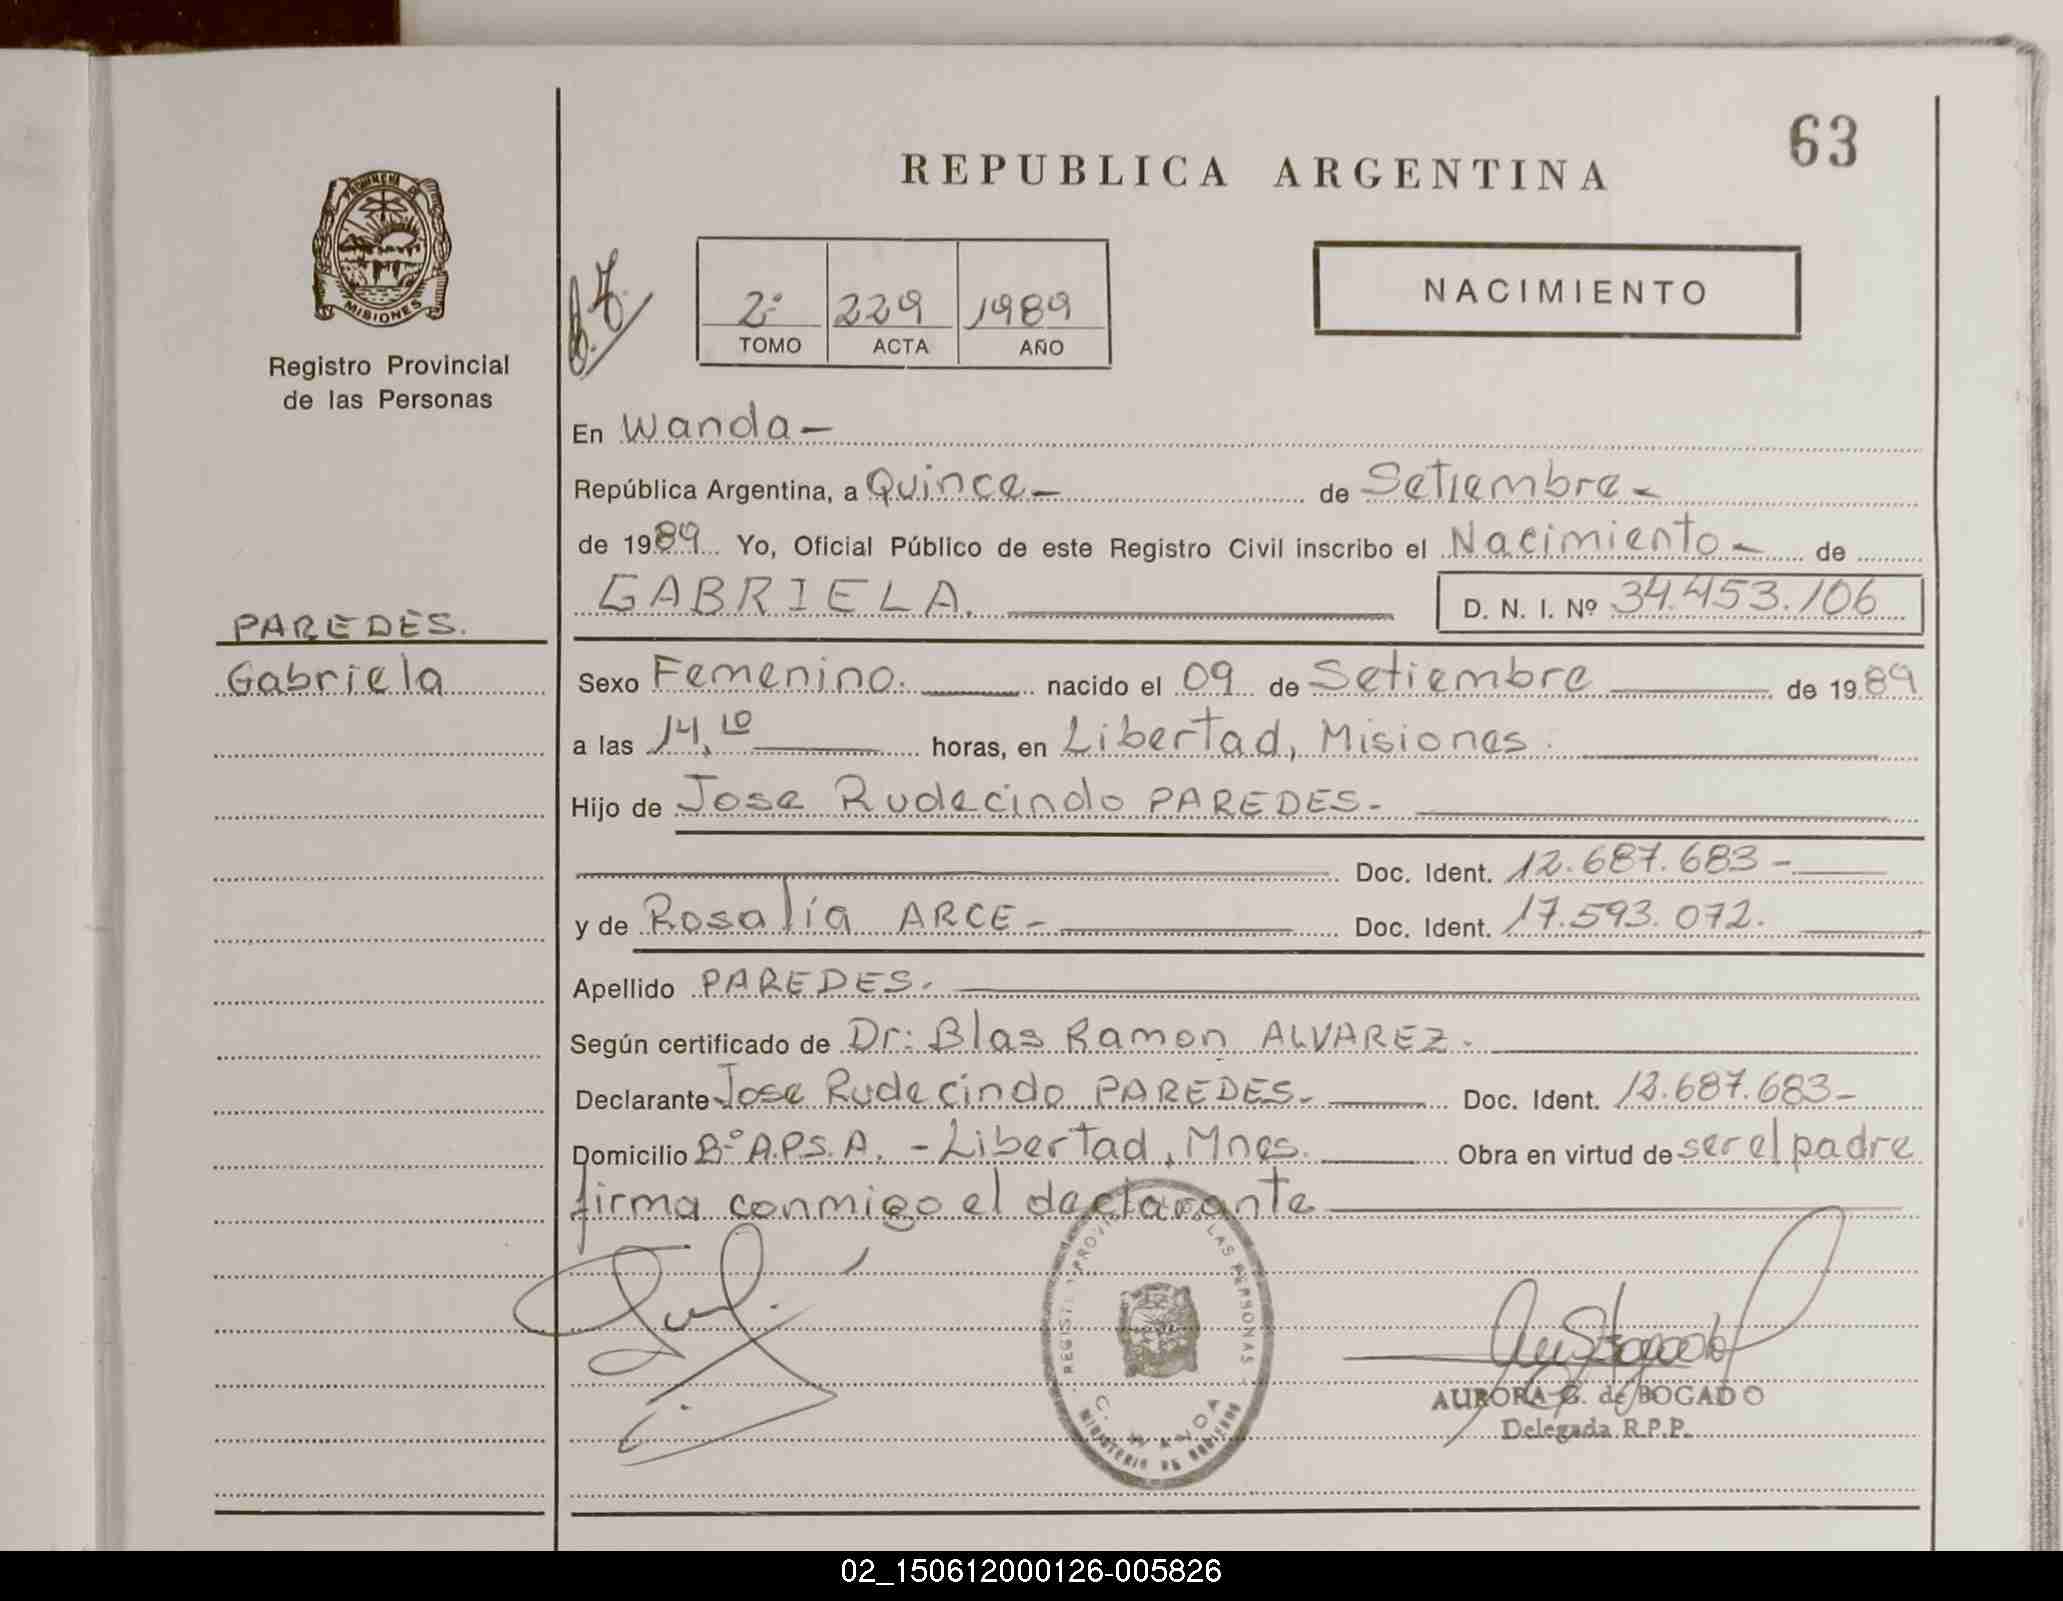 63
REPUBLICA ARGENTINA
MISIONES
Registro Provincial
de las Personas
2º 229 1989
TOMO ACTA AÑO
NACIMIENTO
En Wanda -
República Argentina, a Quince - de Setiembre -
de 1989 Yo, Oficial Público de este Registro Civil inscribo el Nacimiento - de
GABRIELA. D. N. I. Nº 34.453.106
PAREDES.
Gabriela
Sexo Femenino. nacido el 09 de Setiembre de 1989
a las 14,10 horas, en Libertad, Misiones.
Hijo de Jose Rudecindo PAREDES-
Doc. Ident. 12.687.683-
y de Rosalía ARCE- Doc. Ident. 17.593.072.
Apellido PAREDES.
Según certificado de Dr: Blas Ramon ALVAREZ.
Declarante Jose Rudecindo PAREDES- Doc. Ident. 12.687.683-
Domicilio Bº A.P.S.A. - Libertad, Mnes. Obra en virtud de ser el padre
firma conmigo el declarante
LAS PERSONAS
AURORA G. de BOGADO
Delegada R.P.P.
02_150612000126-005826